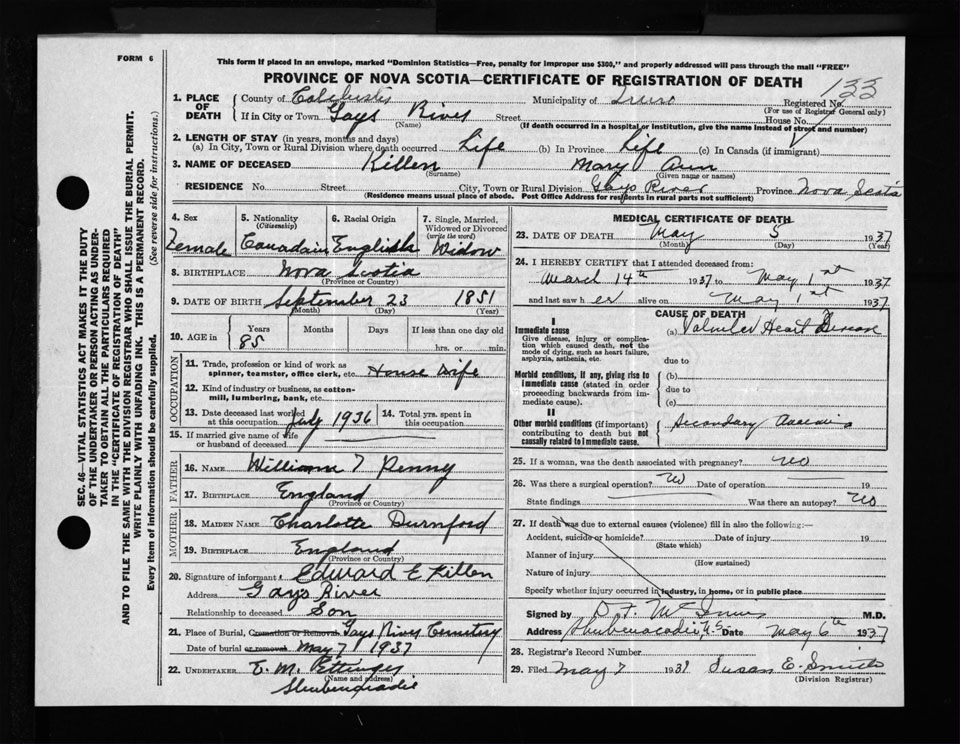 FORM 6
This form if placed in an envelope, marked "Dominion Statistics—Free, penalty for improper use $300," and properly addressed will pass through the mail "FREE"
PROVINCE OF NOVA SCOTIA—CERTIFICATE OF REGISTRATION OF DEATH
133
1. PLACE OF DEATH
County of Colchester Municipality of Truro Registered No.
(For use of Registrar General only)
If in City or Town Gays River Street House No.
(Name) (If death occurred in a hospital or institution, give the name instead of street and number)
2. LENGTH OF STAY (in years, months and days)
(a) In City, Town or Rural Division where death occurred Life (b) In Province Life (c) In Canada (if immigrant)
3. NAME OF DECEASED Killen Mary Ann
(Surname) (Given name or names)
RESIDENCE No. Street City, Town or Rural Division Gays River Province Nova Scotia
(Residence means usual place of abode. Post Office Address for residents in rural parts not sufficient)
4. Sex Female
5. Nationality (Citizenship) Canadain
6. Racial Origin English
7. Single, Married, Widowed or Divorced (write the word) Widow
8. BIRTHPLACE Nova Scotia
(Province or Country)
9. DATE OF BIRTH September 23 1851
(Month) (Day) (Year)
10. AGE in Years 85 Months Days If less than one day old hrs. or min.
OCCUPATION
11. Trade, profession or kind of work as spinner, teamster, office clerk, etc. House Wife
12. Kind of industry or business, as cotton-mill, lumbering, bank, etc.
13. Date deceased last worked at this occupation July 1936
14. Total yrs. spent in this occupation
15. If married give name of wife or husband of deceased
FATHER
16. NAME William T Penny
17. BIRTHPLACE England
(Province or Country)
MOTHER
18. MAIDEN NAME Charlotte Durnford
19. BIRTHPLACE England
(Province or Country)
20. Signature of informant Edward E Killen
Address Gays River
Relationship to deceased Son
21. Place of Burial, Cremation or Removal Gays River Cemetery
Date of burial or removal May 7 1937
22. UNDERTAKER E. M. Ettinger
(Name and address)
Shubenacadie
MEDICAL CERTIFICATE OF DEATH
23. DATE OF DEATH May 5 1937
(Month) (Day) (Year)
24. I HEREBY CERTIFY that I attended deceased from:
March 14th 1937 to May 1st 1937
and last saw her alive on May 1st 1937
CAUSE OF DEATH
I
Immediate cause
Give disease, injury or complication which caused death, not the mode of dying, such as heart failure, asphyxia, asthenia, etc.
(a) Valvular Heart Disease
due to
Morbid conditions, if any, giving rise to immediate cause (stated in order proceeding backwards from immediate cause).
(b)
due to
(c)
II
Other morbid conditions (if important) contributing to death but not causally related to immediate cause.
Secondary
25. If a woman, was the death associated with pregnancy? No
26. Was there a surgical operation? No Date of operation 19
State findings Was there an autopsy? No
27. If death was due to external causes (violence) fill in also the following:—
Accident, suicide or homicide? Date of injury 19
(State which)
Manner of injury
(How sustained)
Nature of injury
Specify whether injury occurred in industry, in home, or in public place
Signed by D. F. McInnis M.D.
Address Shubenacadie, N.S. Date May 6th 1937
28. Registrar's Record Number
29. Filed May 7 1937 Susan E. Smith
(Division Registrar)
SEC. 46—VITAL STATISTICS ACT MAKES IT THE DUTY
OF THE UNDERTAKER OR PERSON ACTING AS UNDERTAKER
TO OBTAIN ALL THE PARTICULARS REQUIRED
IN THE "CERTIFICATE OF REGISTRATION OF DEATH"
AND TO FILE THE SAME WITH THE DIVISION REGISTRAR WHO SHALL ISSUE THE BURIAL PERMIT.
WRITE PLAINLY WITH UNFADING INK. THIS IS A PERMANENT RECORD.
Every item of information should be carefully supplied. (See reverse side for instructions.)